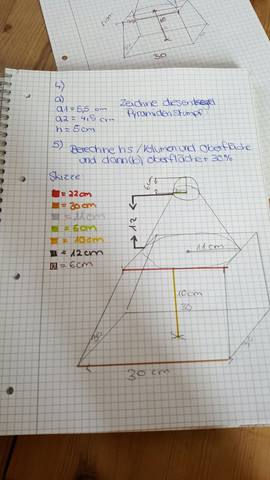 30
4)
a)
a1 = 5,5 cm
a2 = 4,5 cm
h = 5cm
Zeichne diesen
Pyramidenstumpf
5) Berechne hs / Volumen und Oberfläche
und dann(b) Oberfläche + 30%
Skizze
= 22cm
= 30cm
= 11cm
= 6cm
= 10cm
= 12cm
= 6cm
12
11cm
10cm
30
30cm